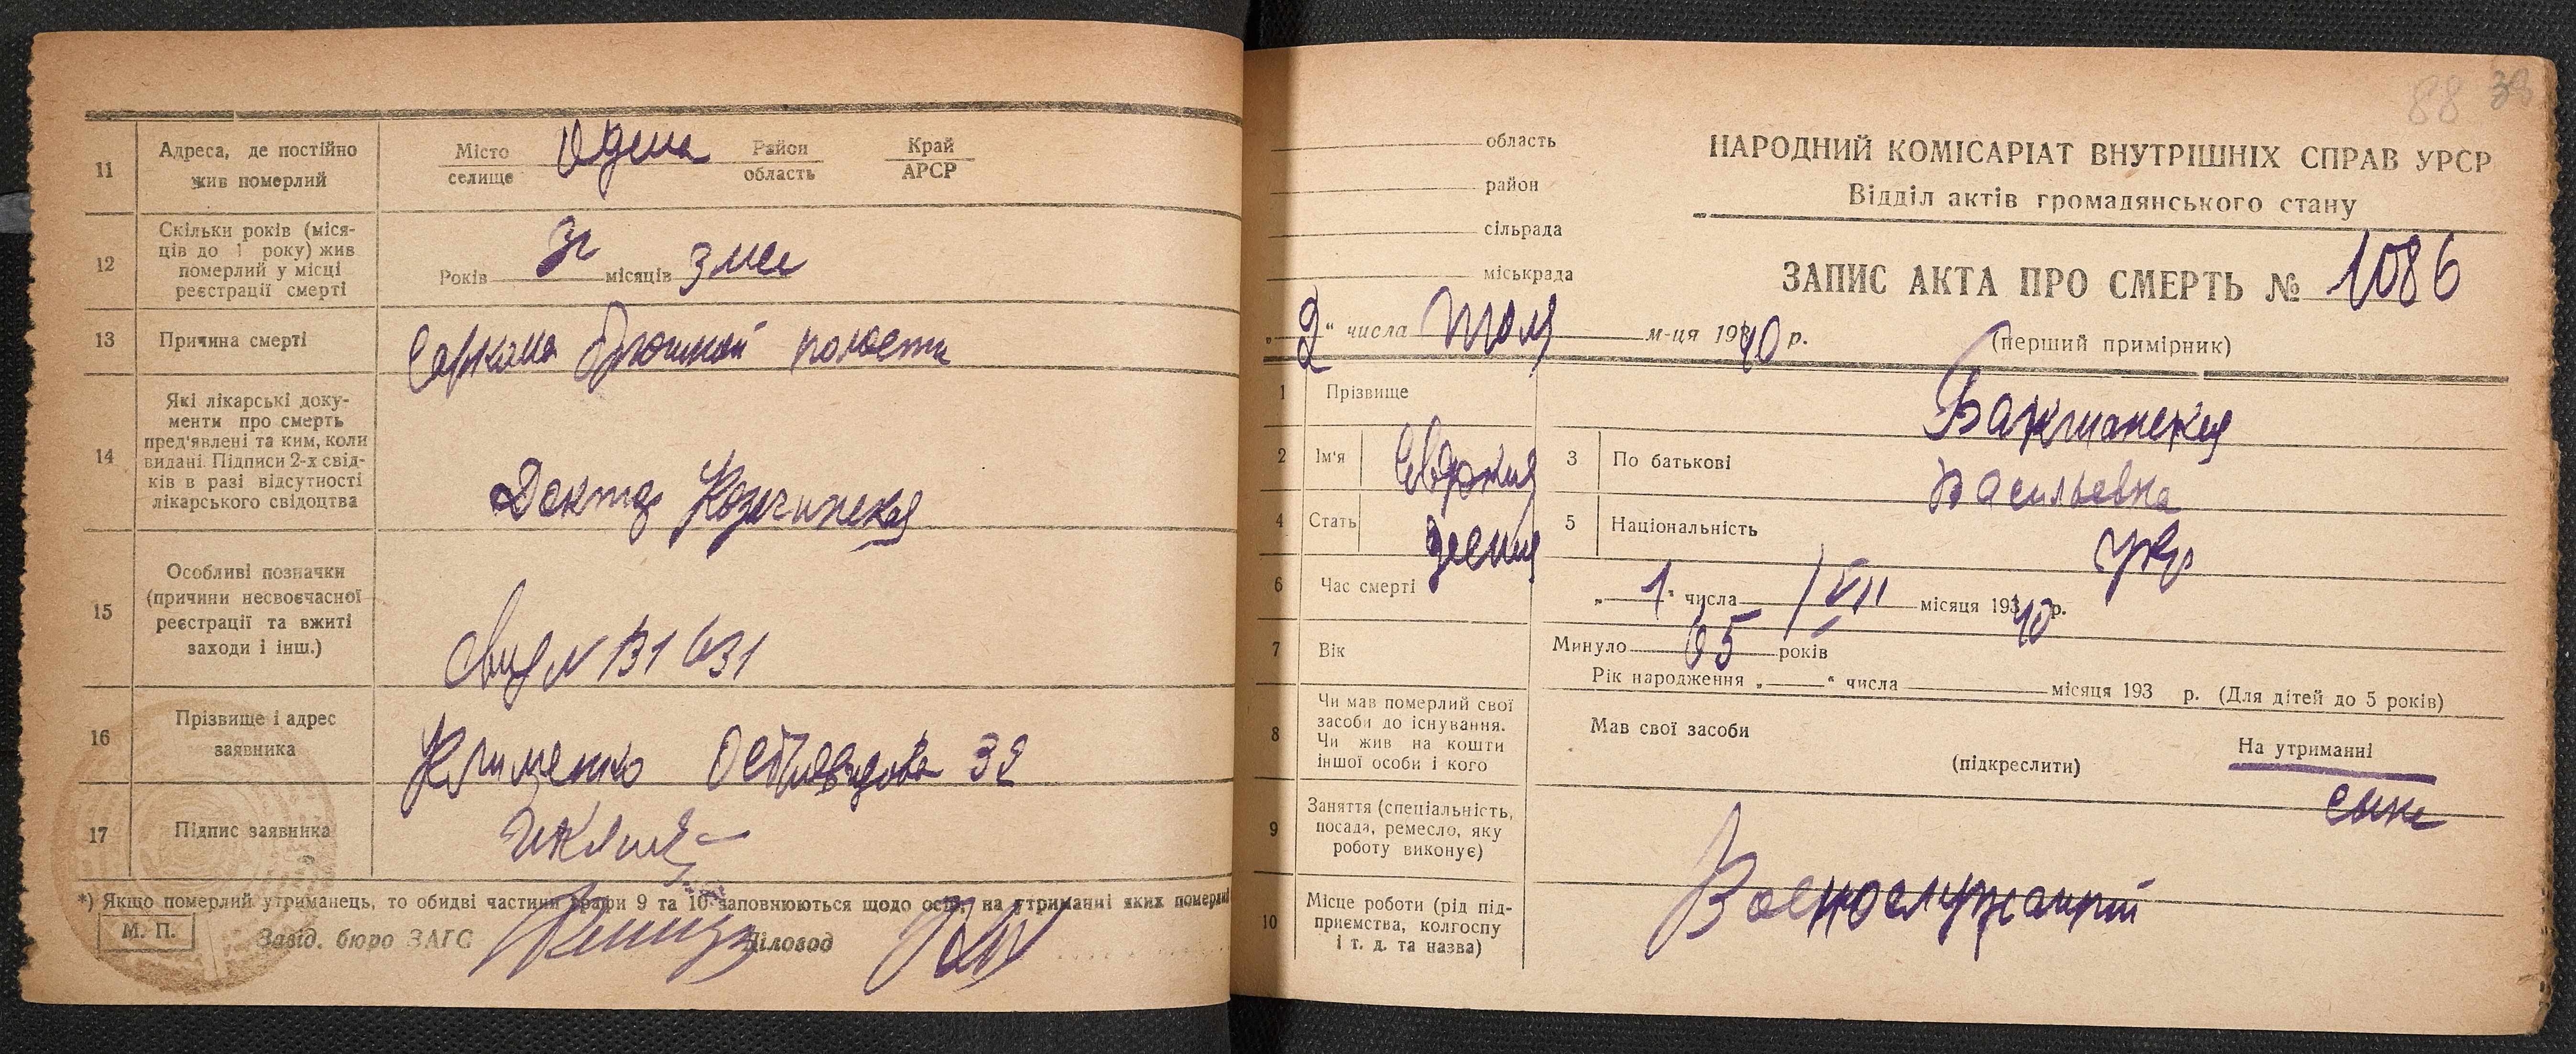 11
Адреса, де постійно
жив померлий
Місто
селище
Одесса
Район
область
Край
АРСР
12
Скільки років (міся-
ців до 1 року) жив
померлий у місці
реєстрації смерті
Років
місяців 3 мес
13
Причина смерті
Саркома брюшной полости
14
Які лікарські доку-
менти про смерть
пред'явлені та ким, коли
видані. Підписи 2-х свід-
ків в разі відсутності
лікарського свідоцтва
Доктор
15
Особливі позначки
(причини несвоєчасної
реєстрації та вжиті
заходи і інш.)
16
Прізвище і адрес
заявника
Клименко Островидова 32
17
Підпис заявника
*) Якщо померлий утриманець, то обидві частини графи 9 та 10 заповнюються щодо осіб, на утриманні яких померлий
М. П.
Завід. бюро ЗАГС
Діловод
88
область
район
сільрада
міськрада
НАРОДНИЙ КОМІСАРІАТ ВНУТРІШНІХ СПРАВ УРСР
Відділ актів громадянського стану
ЗАПИС АКТА ПРО СМЕРТЬ № 1086
(перший примірник)
„2“ числа Июля м-ця 1940 р.
1
Прізвище
2
Ім'я
3
По батькові
Васильевна
4
Стать
5
Національність
укр
6
Час смерті
„1“ числа VII місяця 1940 р.
7
Вік
Минуло 65 років
Рік народження „ “ числа місяця 193 р. (Для дітей до 5 років)
8
Чи мав померлий свої
засоби до існування.
Чи жив на кошти
іншої особи і кого
Мав свої засоби
(підкреслити)
На утриманні
сына
9
Заняття (спеціальність,
посада, ремесло, яку
роботу виконує)
10
Місце роботи (рід під-
приємства, колгоспу
і т. д. та назва)
Военнослужащий